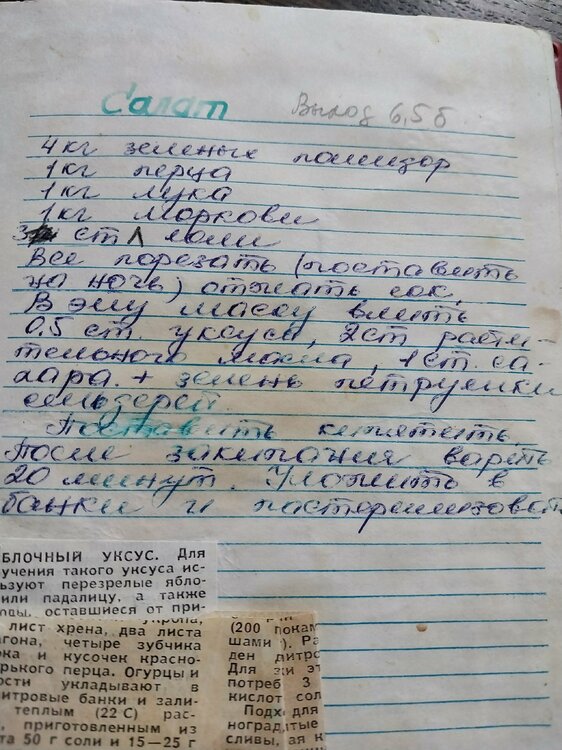 Салат Выход 6,5 б
4 кг зеленых помидор
1 кг перца
1 кг лука
1 кг моркови
3 ст л соли
Все порезать (поставить
на ночь) отжать сок.
В эту массу влить
0.5 ст. уксуса, 2 ст расти-
тельного масла, 1 ст. са-
хара. + зелень петрушки
сельдерей.
Поставить кипятить.
После закипания варить
20 минут. Уложить в
банки и пастеризовать
БЛОЧНЫЙ УКСУС. Для
учения такого уксуса ис-
ьзуют перезрелые ябло-
или падалицу, а также
оды, оставшиеся от при-
лист хрена, два листа
агона, четыре зубчика
ока и кусочек красно-
рького перца. Огурцы и
ости укладывают в
итровые банки и зали-
теплым (22 С) рас-
, приготовленным из
та 50 г соли и 15—25 г
(200 покам
шами ). Ра
ден дитро
Для эт
потреб 3
кислот сол
Подх для
ноград тые
сливы, ая к